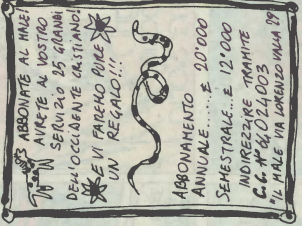 ABBONATE AL MALE!
AVRETE AL VOSTRO
SERVIZIO 25 GRANDI
DELL'OCCIDENTE CRISTIANO!
E VI FARELO PURE
UN REGALO!!!
ABBONAMENTO
ANNUALE.....£ 20'000
SEMESTRALE...£ 12'000
INDIREZZIRE TRAMITE
C.C. Nº 61024003
"IL MALE VIA LORENZO VALLA 29